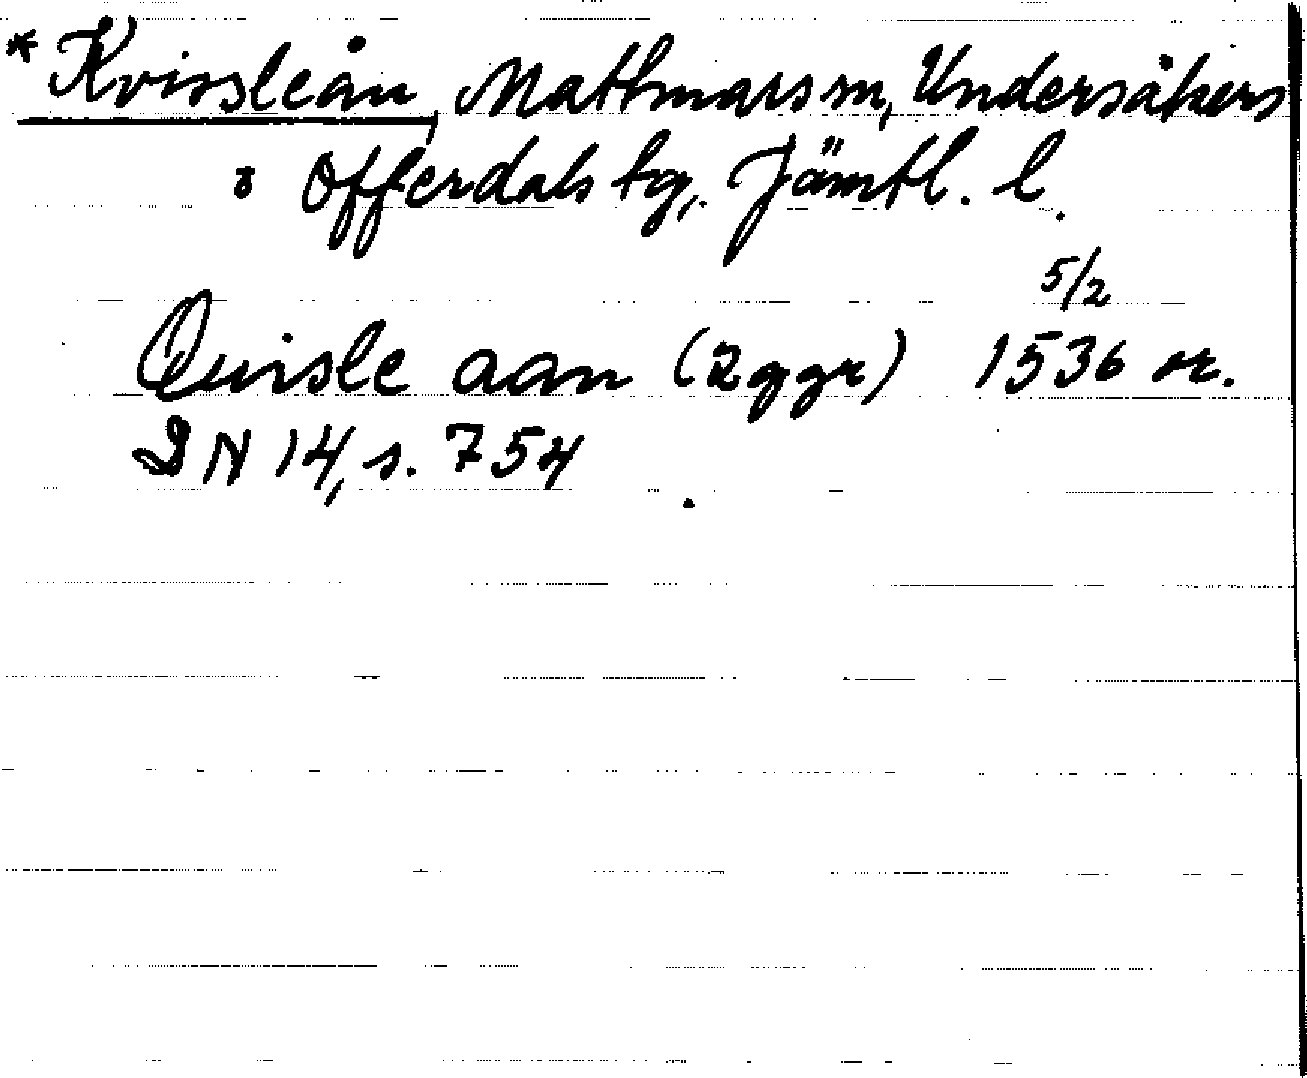 * Kvissleån, Mattmars sn, Undersåkers
o Offerdals tg, Jämtl. l.
5/2
Quisle aan (2 ggr) 1536 or.
DN 14, s. 754